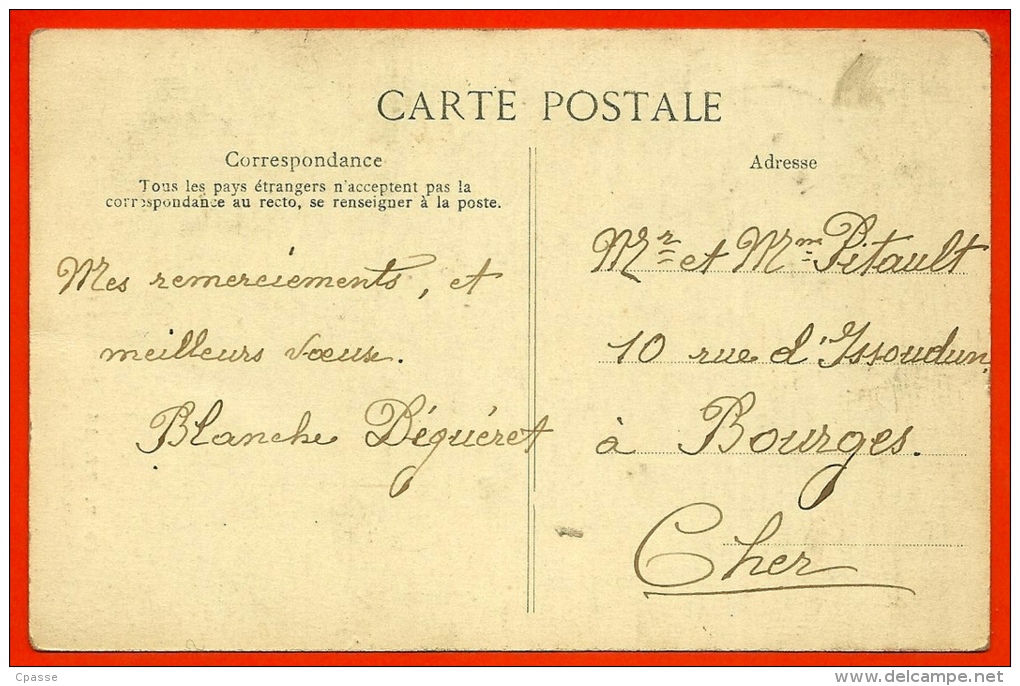 CARTE POSTALE
Correspondance
Tous les pays étrangers n'acceptent pas la
correspondance au recto, se renseigner à la poste.
Mes remerciements, et
meilleurs vœux.
Blanche Déguéret
Adresse
Mr et Mme Pitault
10 rue d'Issoudun
à Bourges.
Cher
Cpasse
www.delcampe.net